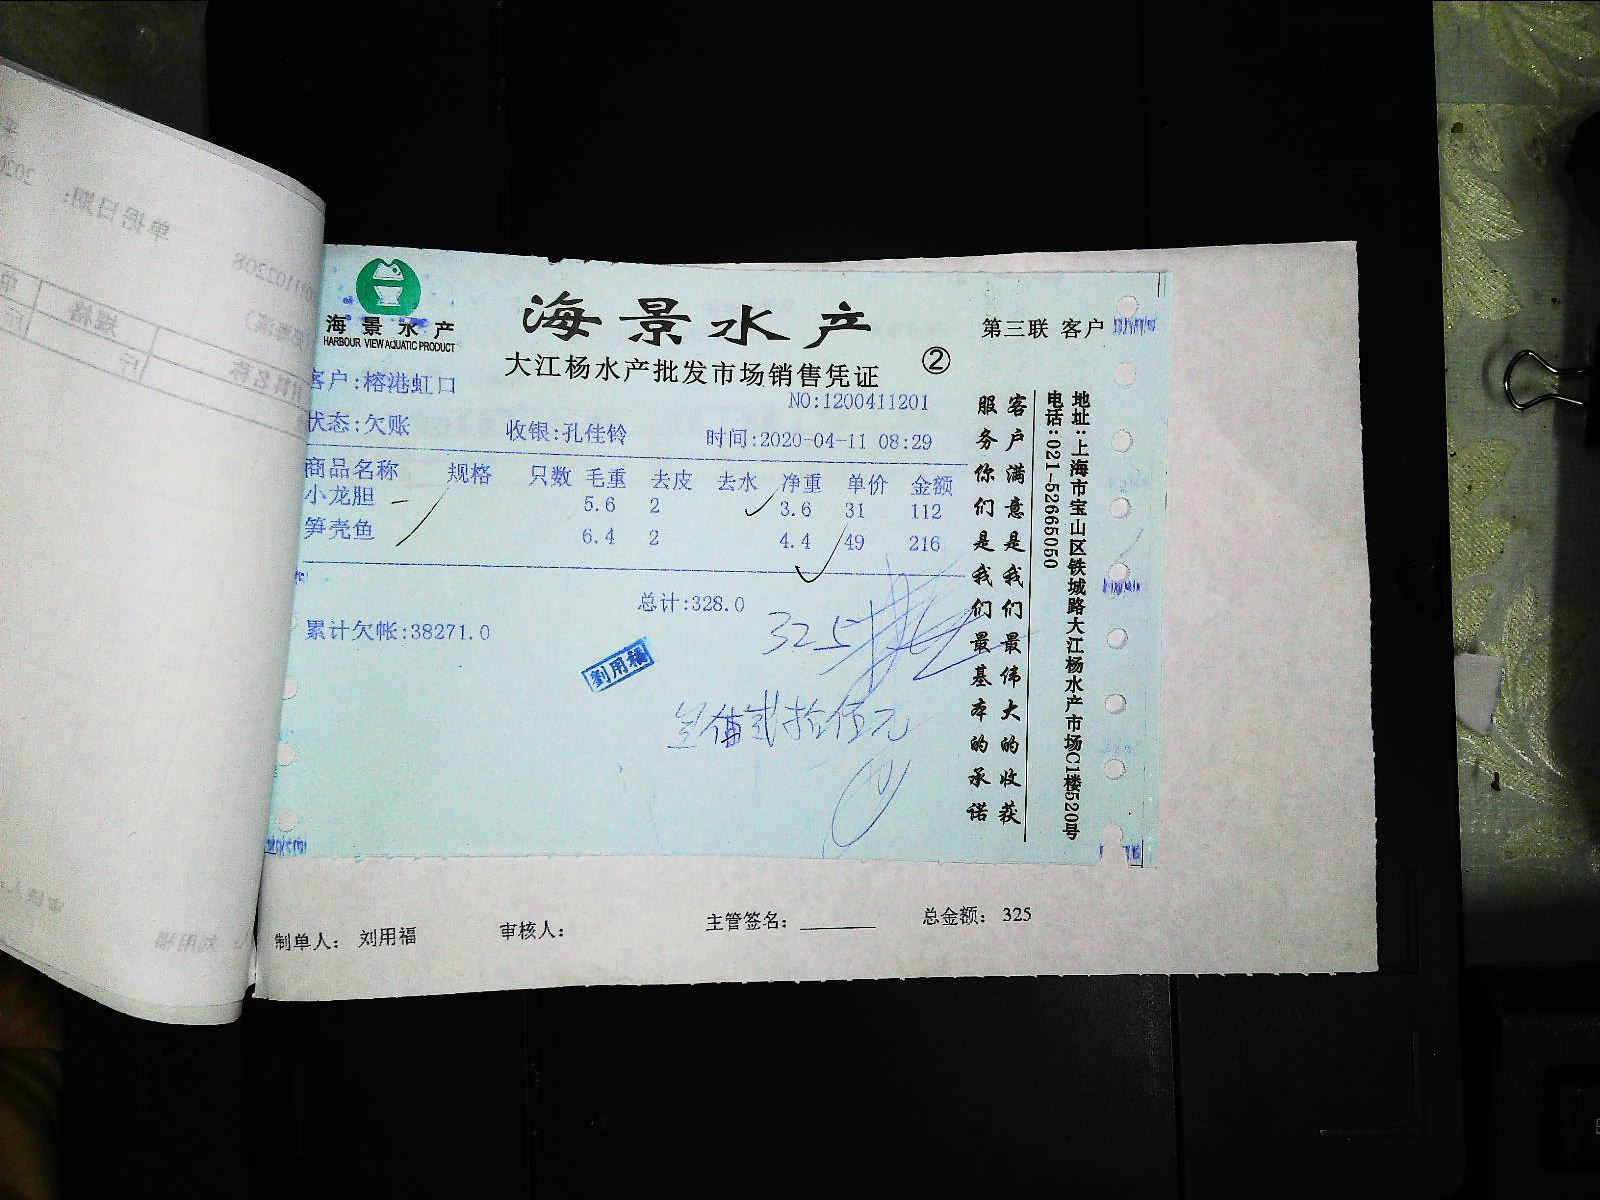 海景水产
HARBOUR VIEW AQUATIC PRODUCT
海景水产
大江杨水产批发市场销售凭证
②
第三联 客户
客户:榕港虹口
NO:1200411201
状态:欠账 收银:孔佳铃 时间:2020-04-11 08:29
商品名称 规格 只数 毛重 去皮 去水 净重 单价 金额
小龙胆 5.6 2 3.6 31 112
笋壳鱼 6.4 2 4.4 49 216
总计:328.0
累计欠帐:38271.0
325
劉用福
叁佰贰拾伍元
客户满意是我们最伟大的收获
服务你们是我们最基本的承诺
地址:上海市宝山区铁城路大江杨水产市场C1楼520号
电话:021-52665050
制单人: 刘用福 审核人: 主管签名: 总金额: 325
单据日期:
规格
刘用福